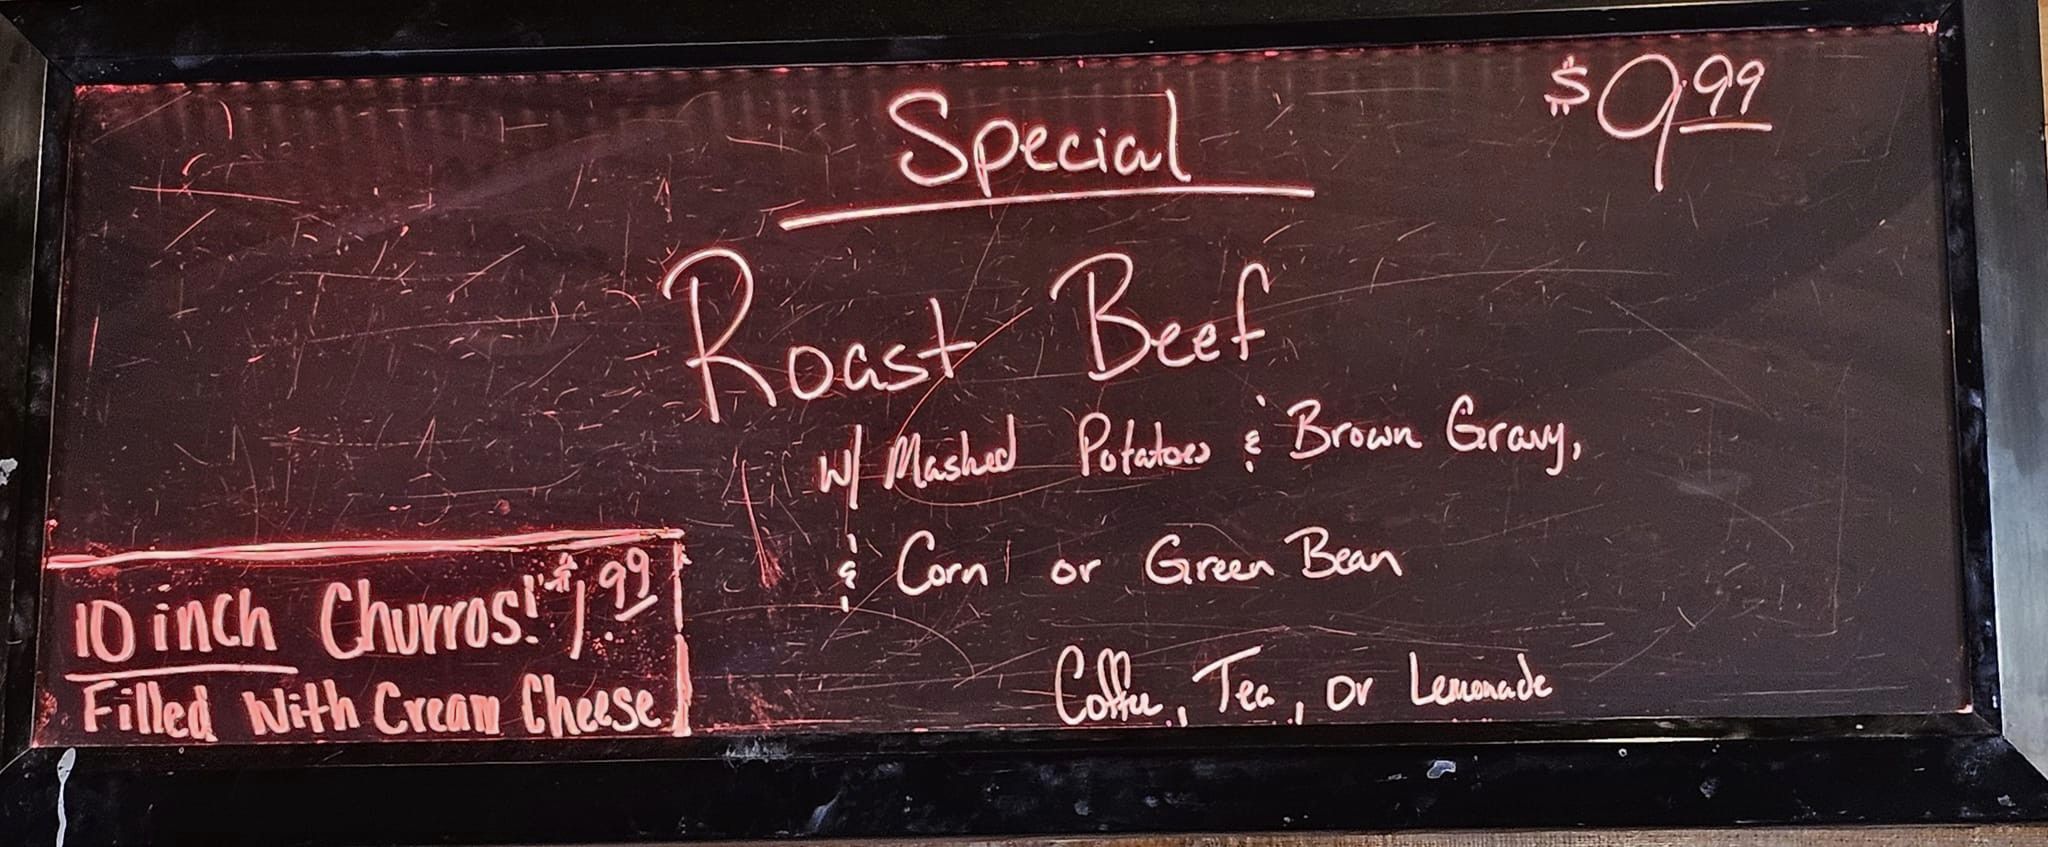 Special
$9.99
Roast Beef
w/ Mashed Potatoes & Brown Gravy,
& Corn or Green Bean
Coffee, Tea, or Lemonade
10 inch Churros! $1.99
Filled With Cream Cheese